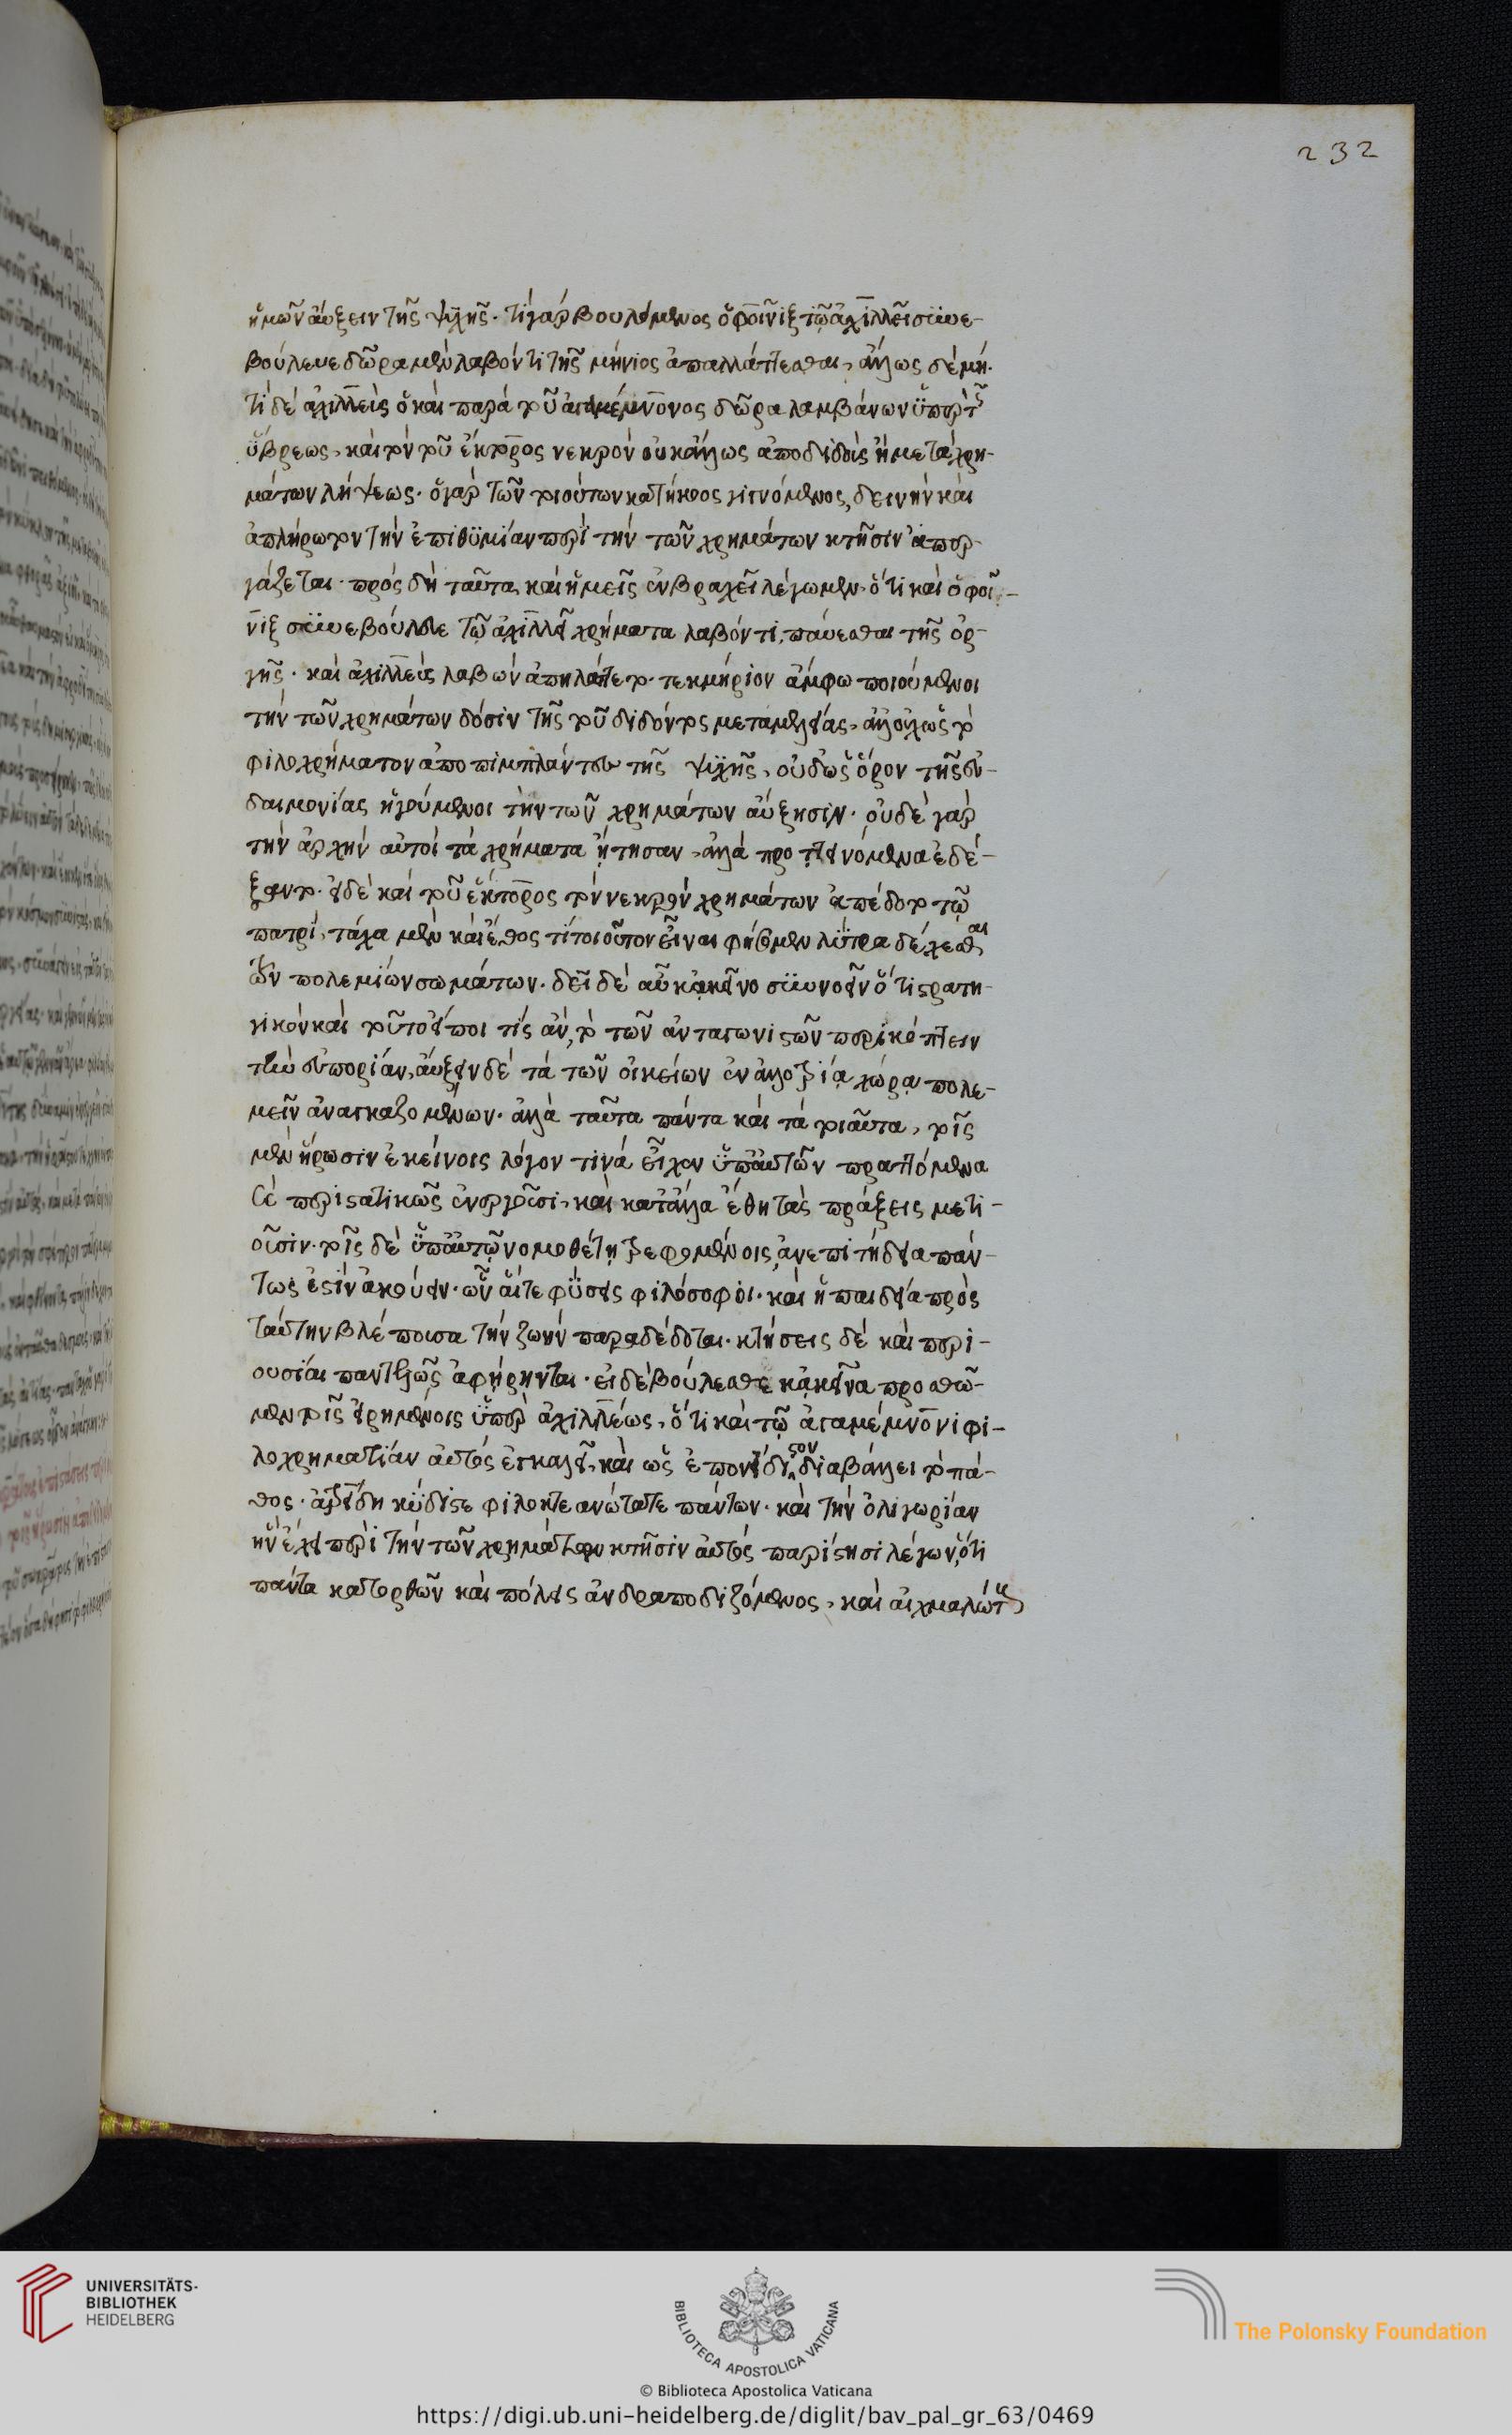 232
ἡμῶν αὔξειν τῆς ψυχῆς. τί γὰρ βουλόμενος ὁ φοῖνιξ τῷ ἀχιλλεῖ συνε-
βούλευε δῶρα μὲν λαβόντι τῆς μήνιος ἀπαλλάττεσθαι, ἄλλως δὲ μή.
τί δὲ ἀχιλλεὺς ὁ καὶ παρὰ τοῦ ἀγαμέμνονος δῶρα λαμβάνων ὑπὲρ τῆς
ὕβρεως, καὶ τὸν τοῦ ἕκτορος νεκρὸν οὐκ ἄλλως ἀποδιδοὺς ἢ μετὰ χρη-
μάτων λήψεως. ὁ γὰρ τῶν τοιούτων κατήκοος γιγνόμενος, δεινὴν καὶ
ἀπλήρωτον τὴν ἐπιθυμίαν περὶ τὴν τῶν χρημάτων κτῆσιν ἀπερ-
γάζεται. πρὸς δὴ ταῦτα καὶ ἡμεῖς ἐν βραχεῖ λέγωμεν. ὅτι καὶ ὁ φοῖ-
νιξ συνεβούλευε τῷ ἀχιλλεῖ χρήματα λαβόντι, παύεσθαι τῆς ὀρ-
γῆς. καὶ ἀχιλλεὺς λαβὼν ἀπηλάττετο. τεκμήριον ἄμφω ποιούμενοι
τὴν τῶν χρημάτων δόσιν τῆς τοῦ διδόντος μεταμελείας, ἀλλ' οὐχ ὡς τὸ
φιλοχρήματον ἀποπιμπλάντων τῆς ψυχῆς, οὐδ' ὡς ὅρον τῆς εὐ-
δαιμονίας ἡγούμενοι τὴν τῶν χρημάτων αὔξησιν. οὐδὲ γὰρ
τὴν ἀρχὴν αὐτοὶ τὰ χρήματα ᾔτησαν, ἀλλὰ προτεινόμενα ἐδέ-
ξαντο. εἰ δὲ καὶ τοῦ ἕκτορος τὸν νεκρὸν χρημάτων ἀπέδοτο τῷ
πατρί, τάχα μὲν καὶ ἔθος τί τοιοῦτον εἶναι φήσομεν λύτρα δέχεσθαι
τῶν πολεμίων σωμάτων. δεῖ δὲ αὖ κἀκεῖνο συννοεῖν ὅτι στρατη-
γικὸν καὶ τοῦτο εἴποι τίς ἄν, τὸ τῶν ἀνταγωνιστῶν περικόπτειν
τὴν εὐπορίαν, αὔξειν δὲ τὰ τῶν οἰκείων ἐν ἀλλοτρίᾳ χώρᾳ πολε-
μεῖν ἀναγκαζομένων. ἀλλὰ ταῦτα πάντα καὶ τὰ τοιαῦτα, τοῖς
μὲν ἥρωσιν ἐκείνοις λόγον τινὰ εἶχον ὑπ' αὐτῶν πραττόμενα
τέ περιστατικῶς ἐνεργοῦσι, καὶ κατ' ἄλλα ἔθη τὰς πράξεις μετι-
οῦσιν. τοῖς δὲ ὑπ' αὐτῷ νομοθέτῃ τρεφομένοις, ἀνεπιτήδεια πάν-
τως ἐστὶν ἀκούειν. ὧν αἵ τε φύσεις φιλόσοφοι. καὶ ἡ παιδεία πρὸς
ταύτην βλέπουσα τὴν ζωὴν παραδέδοται. κτήσεις δὲ καὶ περι-
ουσίαι παντελῶς ἀφῄρηνται. εἰ δὲ βούλεσθε κἀκεῖνα προσθῶ-
μεν τοῖς εἰρημένοις ὑπὲρ ἀχιλλέως, ὅτι καὶ τῷ ἀγαμέμνονι φι-
λοχρηματίαν αὐτὸς ἐγκαλεῖ, καὶ ὡς ἐπονείδιστον διαβάλλει τὸ πά-
θος. ἀτρείδη κύδιστε φιλοκτεανώτατε πάντων. καὶ τὴν ὀλιγωρίαν
ἣν ἔχει περὶ τὴν τῶν χρημάτων κτῆσιν αὐτὸς παρίστησι λέγων, ὅτι
πάντα κατορθῶν καὶ πόλεις ἀνδραποδιζόμενος, καὶ αἰχμαλώτους
UNIVERSITÄTS-
BIBLIOTHEK
HEIDELBERG
BIBLIOTECA APOSTOLICA VATICANA
© Biblioteca Apostolica Vaticana
The Polonsky Foundation
https://digi.ub.uni-heidelberg.de/diglit/bav_pal_gr_63/0469